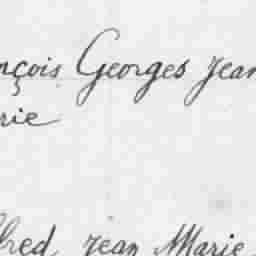 nçois Georges Jean
rie
fred Jean Marie